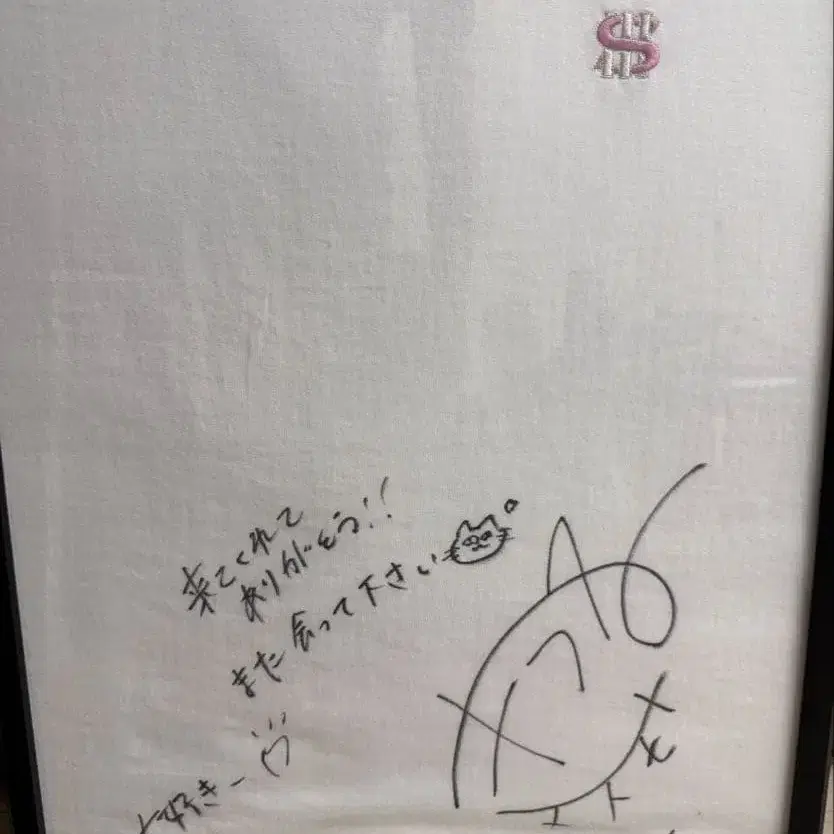 来てくれて
ありがとう!!
また会って下さい
大好きー